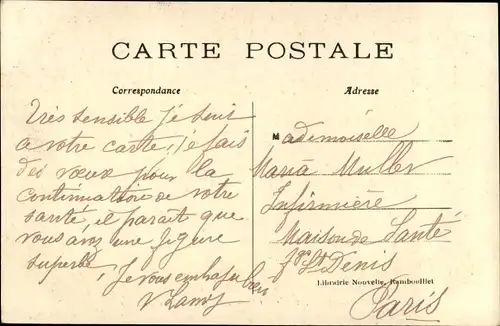 CARTE POSTALE
Correspondance
Très sensible je suis
a votre carte, je fais
des vœux pour la
continuation de votre
santé, il parait que
vous avez une figure
superbe
Je vous embrasse bien
Adresse
Mademoiselle
Maria Muller
Infirmière
Maison de Santé
St Denis
Librairie Nouvelle, Rambouillet
Paris